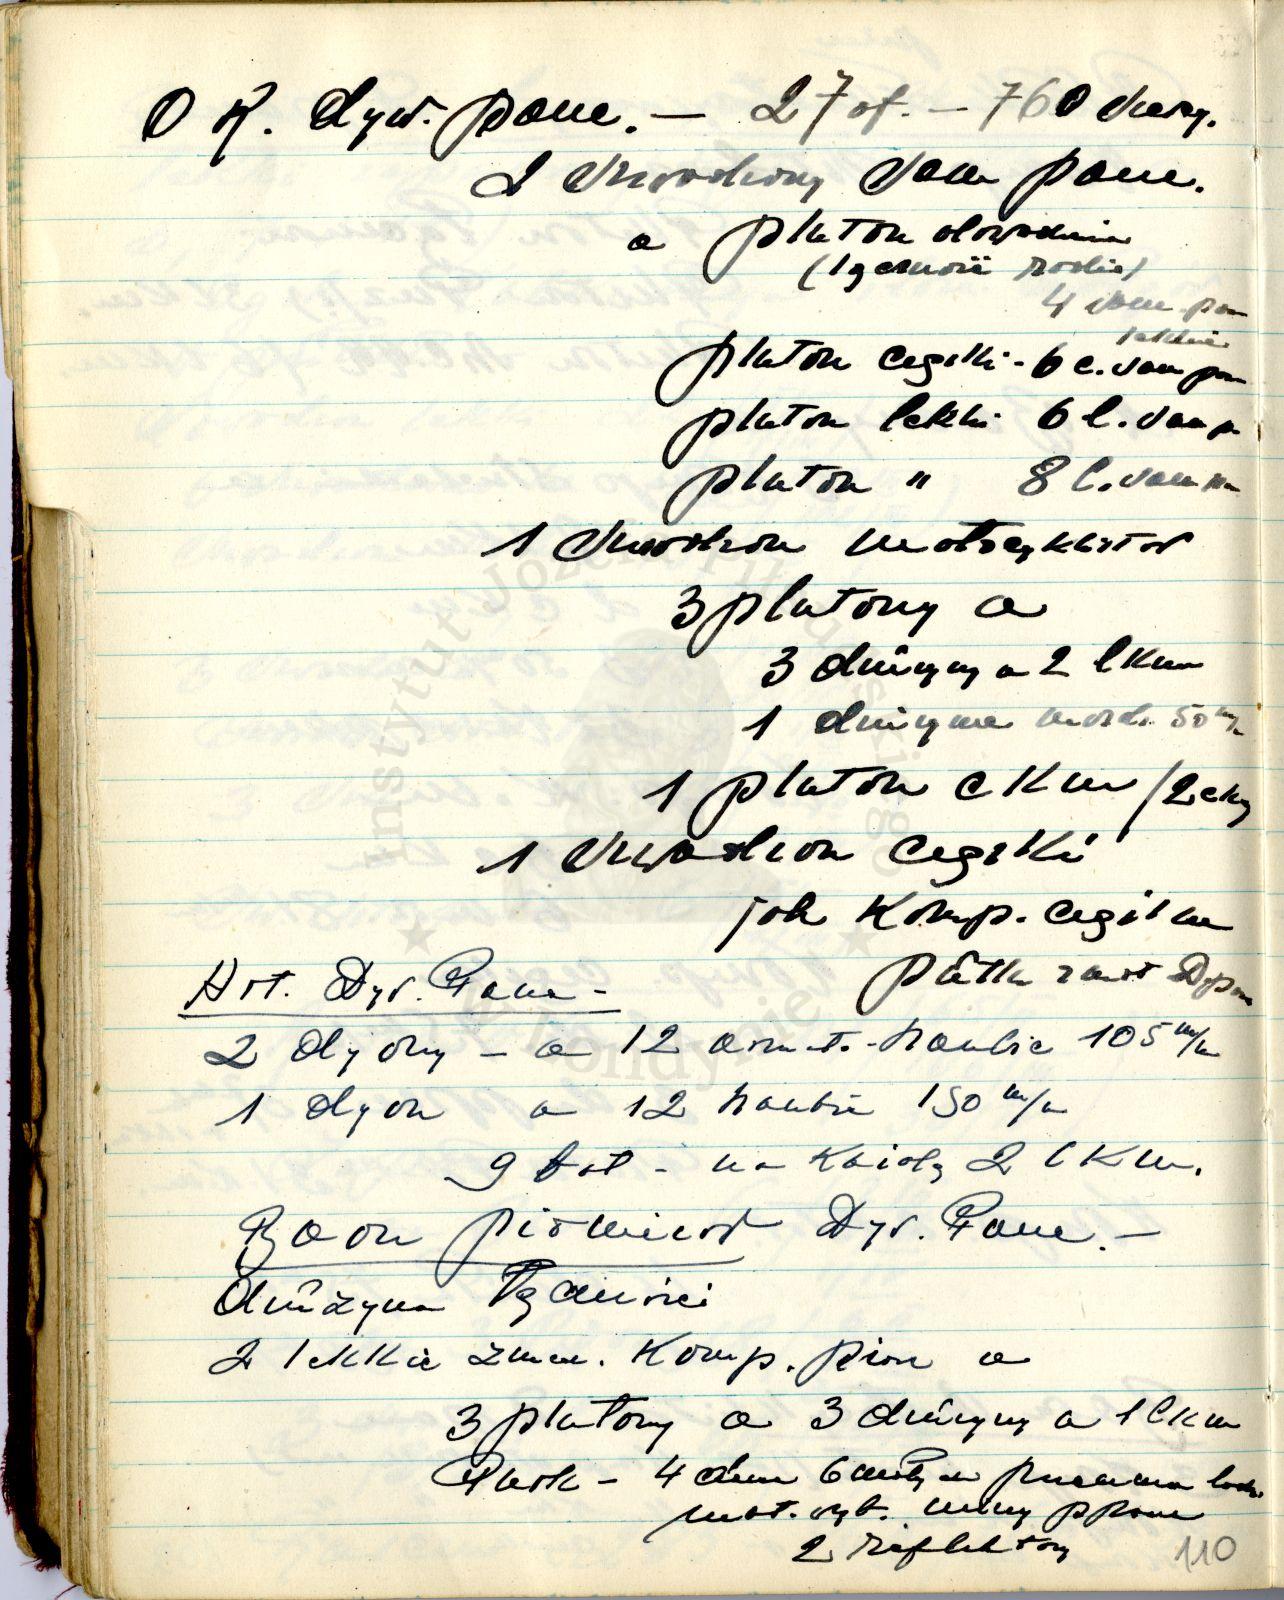 O R. dyw. panc. — 27 of. — 760 szereg.
2 szwadrony sam panc.
a pluton dowodzenia
(łączność radio)
4 sam. pan
lekkie
pluton ciężki - 6 c. sam pan
pluton lekki 6 l. sam p
pluton " 8 l. sam pan
1 szwadron motocyklistów
3 plutony a
3 drużyny a 2 lkm
1 drużyna moźdz. 50 m/m
1 pluton ckm /2 ckm
1 szwadron ciężki
jak komp. ciężka
Art. Dyw. Panc. -
2 dyony - a 12 armat.-haubic 105 m/m
1 dyon a 12 haubic 150 m/m
9 bat - na każdą 2 lkm.
Baon pionierów Dyw. Panc. —
drużyna łączności
2 lekkie zmot. komp. pion a
3 plutony a 3 drużyny a 1 lkm
Park - 4
mat. wyb. miny ppanc
2 reflektory
110
Instytut Józefa Piłsudskiego
w Londynie